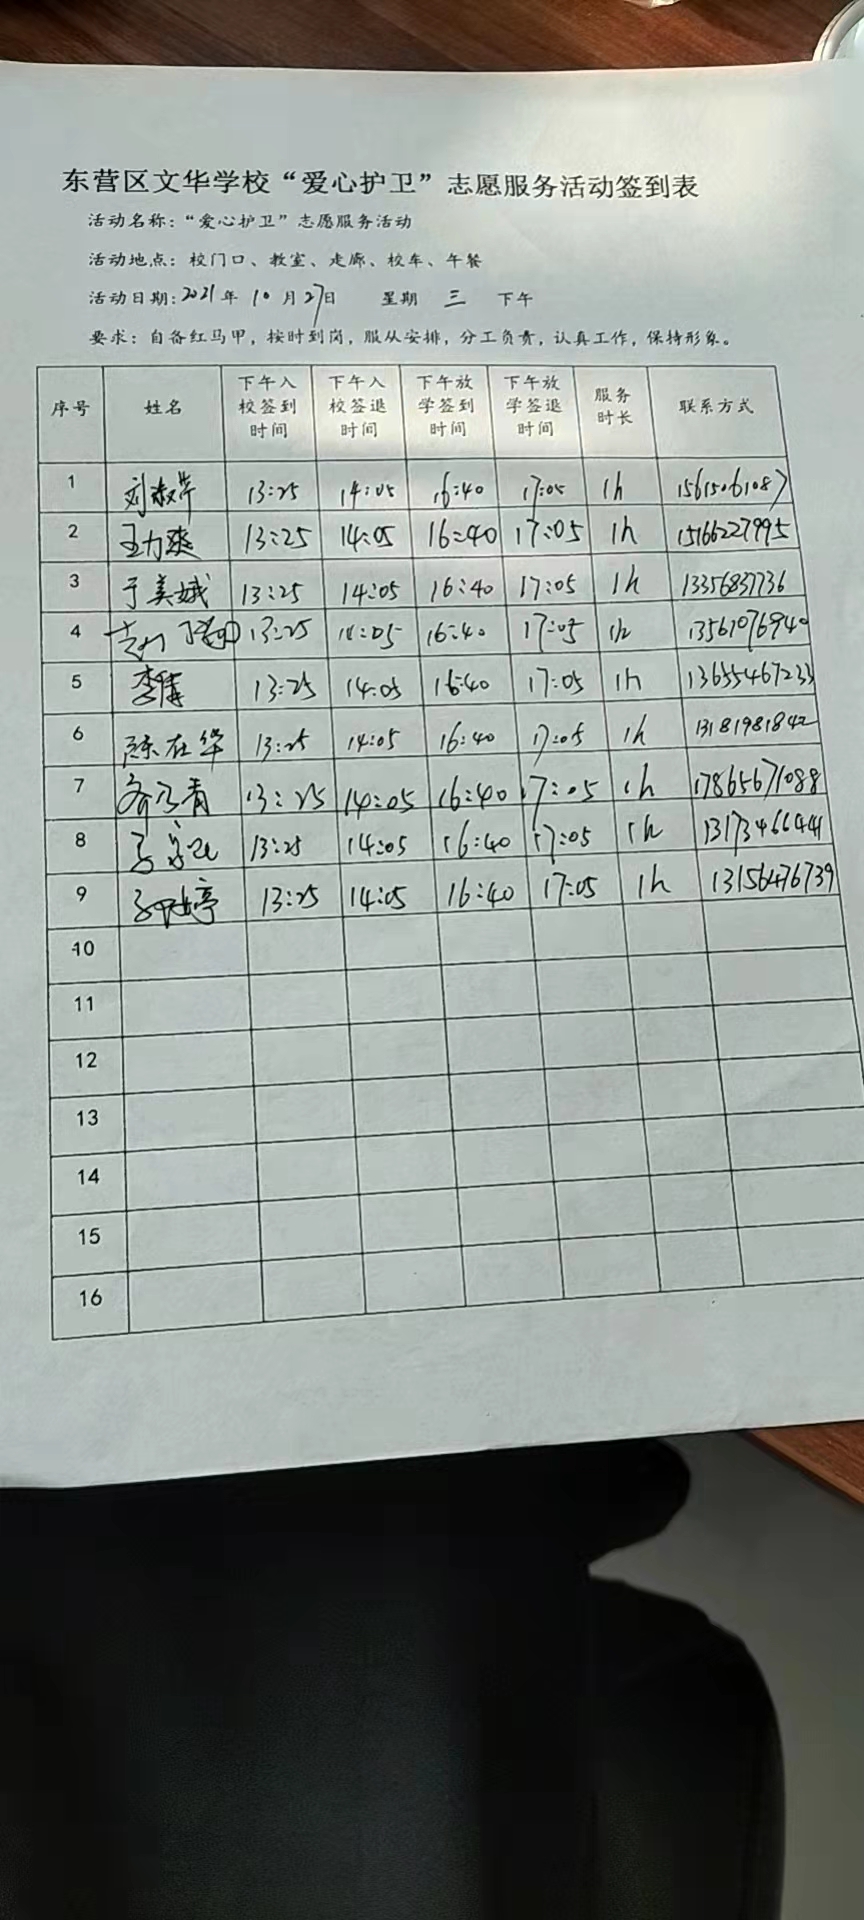 东营区文华学校“爱心护卫”志愿服务活动签到表
活动名称：“爱心护卫”志愿服务活动
活动地点：校门口、教室、走廊、校车、午餐
活动日期：2021年 10 月 27日 星期 三 下午
要求：自备红马甲，按时到岗，服从安排，分工负责，认真工作，保持形象。
序号 姓名 下午入校签到时间 下午入校签退时间 下午放学签到时间 下午放学签退时间 服务时长 联系方式
1 刘淑芹 13:25 14:05 16:40 17:05 1h 15615061087
2 王力爽 13:25 14:05 16:40 17:05 1h 15166227995
3 于美娥 13:25 14:05 16:40 17:05 1h 13356837736
4 13:25 14:05 16:40 17:05 1h 13561076940
5 李倩 13:25 14:05 16:40 17:05 1h 13655467233
6 陈在华 13:25 14:05 16:40 17:05 1h 13181981842
7 齐乃青 13:25 14:05 16:40 17:05 1h 17865671088
8 13:25 14:05 16:40 17:05 1h 13173466441
9 13:25 14:05 16:40 17:05 1h 13156476739
10
11
12
13
14
15
16